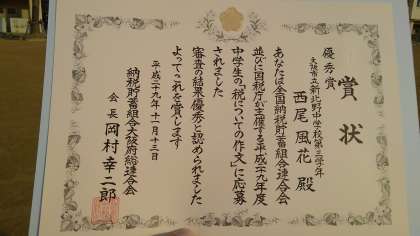 賞状
優秀賞
大阪市立新北野中学校第三学年
西尾風花殿
あなたは全国納税貯蓄組合連合会
並びに国税庁が主催する平成二十九年度
中学生の「税についての作文」に応募
されました
審査の結果優秀と認められました
よってこれを賞します
平成二十九年十一月十三日
納税貯蓄組合大阪府総連合会
会長岡村幸二郎